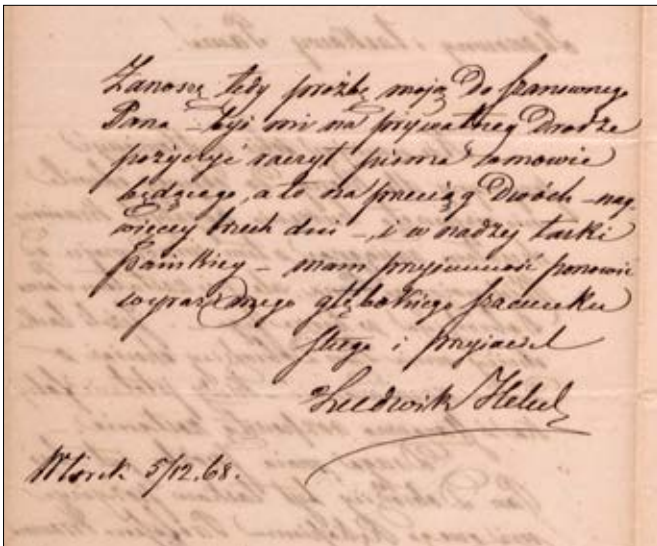 Zanoszę tedy prośbę moją do szanownego
Pana – byś mi na prywatney drodze
pożyczyć raczył pisma w mowie
będącego, a to na przeciąg dwóch – nay-
więcey trzech dni – i w nadzei łaski
Pańskiey – mam przyjemność ponowić
wyraz mego głębokiego szacunku
sługa i przyjaciel
Ludwik Helcel
Wtorek 5/12.68.